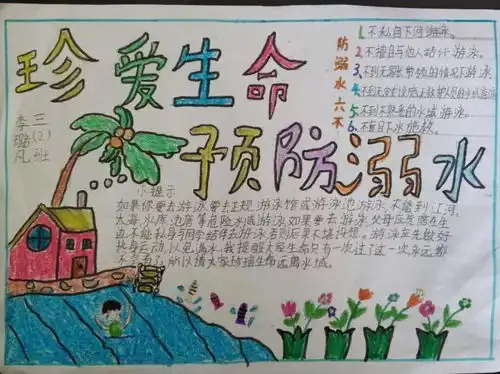 珍爱生命
预防溺水
三(2)班
李璐凡
防溺水六不
1.不私自下河游泳。
2.不擅自与他人结伴游泳。
3.不到无家长带领的情况下游泳
4.不到无安全设施无救护人员的水域游泳
5.不到不熟悉的水域游泳。
6.不盲目下水施救。
小提示
如果你要去游泳要去正规游泳馆或游泳池游泳,不能到江河,
大海,水库,池塘等危险水域游泳如果要去游泳父母应先陪在身
边不能私身与同学结伴去游泳否则后果不堪设想。游泳应先做好
热身运动,以免溺水。我提醒大家生命只有一次过了这一次永远都
不会有了所以请大家珍惜生命远离水域。